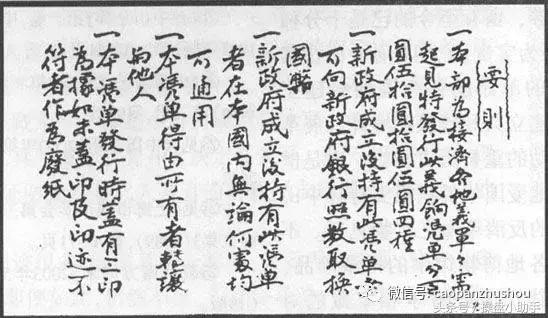 要則
一本部為接濟各地義軍軍需
起見特發行此義餉憑單分百
圓伍拾圓拾圓伍圓四種
一新政府成立後持有憑單者
可向新政府銀行照數收換
國幣
一新政府成立後持有此憑單
者在本國內無論何處均
可通用
一本憑單得由所有者轉讓
與他人
一本憑單發行時蓋有三印
為據如未蓋印及印迹不
符者作為廢紙
微信号: caopanzhushou
头条号 / 操盘小助手